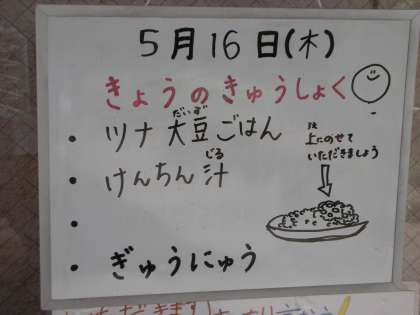 5月16日(木)
きょうのきゅうしょく
・ツナ大豆ごはん
だいず
・けんちん汁
じる
・
・ぎゅうにゅう
上にのせて
いただきましょう